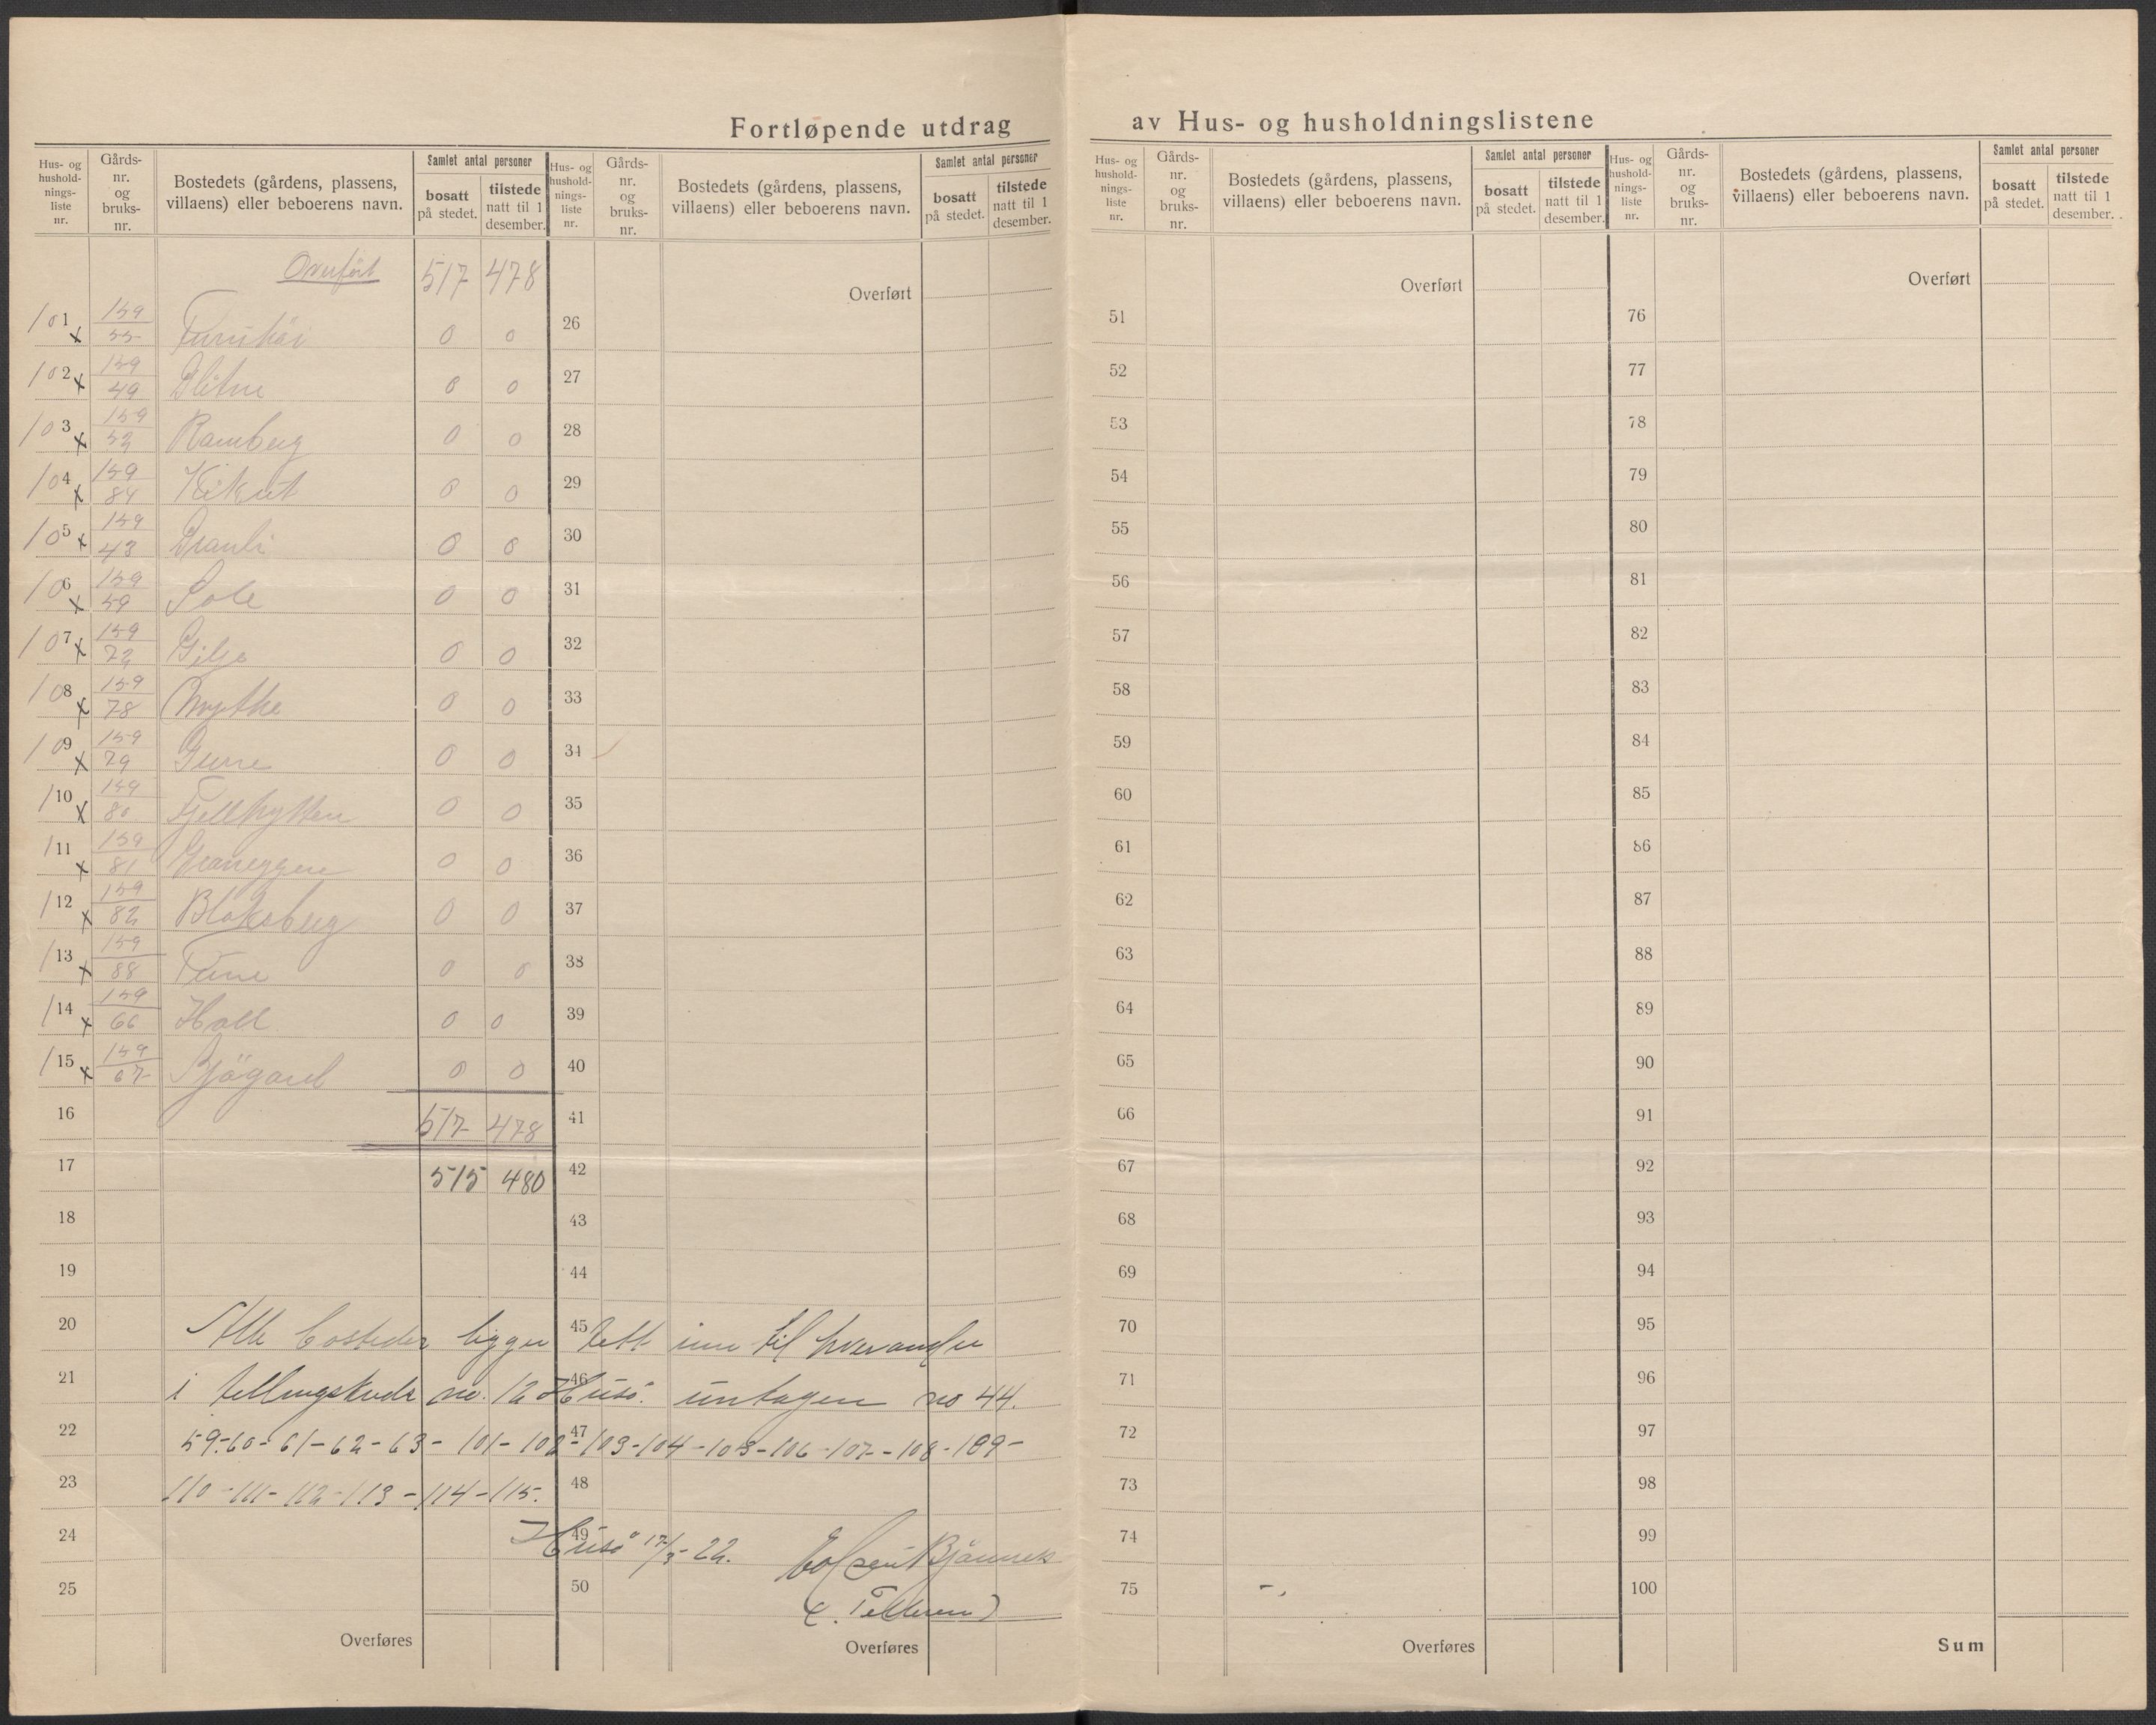 Fortløpende utdrag av Hus- og husholdningslistene
Hus- og hushold-nings-liste nr.
Gårds-nr. og bruks-nr.
Bostedets (gårdens, plassens, villaens) eller beboerens navn.
Samlet antal personer
bosatt på stedet.
tilstede natt til 1 desember.
Hus- og hushold-nings-liste nr.
Gårds-nr. og bruks-nr.
Bostedets (gårdens, plassens, villaens) eller beboerens navn.
Samlet antal personer
bosatt på stedet.
tilstede natt til 1 desember.
Hus- og hushold-nings-liste nr.
Gårds-nr. og bruks-nr.
Bostedets (gårdens, plassens, villaens) eller beboerens navn.
Samlet antal personer
bosatt på stedet.
tilstede natt til 1 desember.
Hus- og hushold-nings-liste nr.
Gårds-nr. og bruks-nr.
Bostedets (gårdens, plassens, villaens) eller beboerens navn.
Samlet antal personer
bosatt på stedet.
tilstede natt til 1 desember.
Overført 517 478
101 x 159/55 Furuhöi 0 0
102 x 159/49 Glitne 0 0
103 x 159/52 Ramberg 0 0
104 x 159/84 Kikut 0 0
105 x 159/43 Granli 0 0
106 x 159/59 Sole 0 0
107 x 159/72 Gilje 0 0
108 x 159/78 0 0
109 x 159/79 Gurre 0 0
110 x 159/80 Fjellhytten 0 0
111 x 159/81 Graneggen 0 0
112 x 159/82 Bloksberg 0 0
113 x 159/88 Tune 0 0
114 x 159/66 Hall 0 0
115 x 159/67 Bjögard 0 0
16 517 478
17 515 480
18
19
20
21
22
23
24
25
Overføres
Overført
26
27
28
29
30
31
32
33
34
35
36
37
38
39
40
41
42
43
44
45
46
47
48
49
50
Overføres
Alle bosteder ligger tett inn til hverandre
i tellingskreds no. 12 Husö. untagen no 44.
59-60-61-62-63-101-102-103-104-105-106-107-108-109-
110-111-112-113-114-115.
Husö 17/3-22.
Bjönnes
(. Telleren)
Overført
51
52
53
54
55
56
57
58
59
60
61
62
63
64
65
66
67
68
69
70
71
72
73
74
75
Overføres
Overført
76
77
78
79
80
81
82
83
84
85
86
87
88
89
90
91
92
93
94
95
96
97
98
99
100
Sum